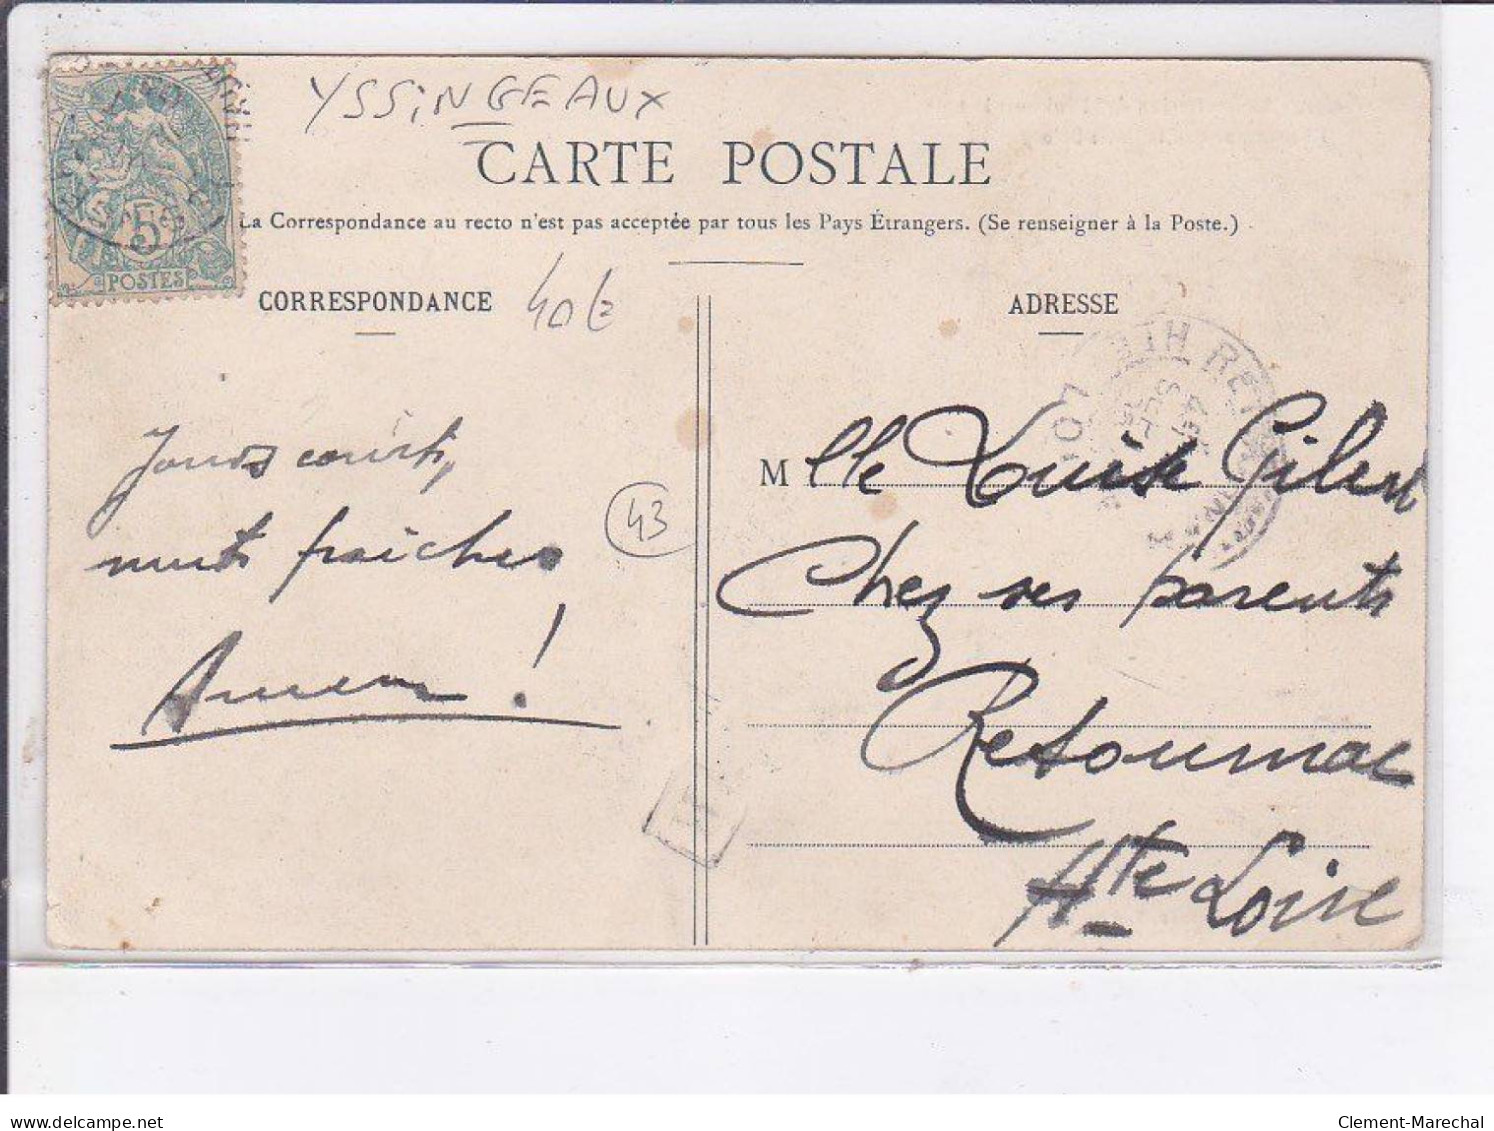 YSSiNGEAUX
CARTE POSTALE
La Correspondance au recto n'est pas acceptée par tous les Pays Étrangers. (Se renseigner à la Poste.)
5
POSTES
CORRESPONDANCE
40€
ADRESSE
Jours courts,
nuits fraîches
43
!
Mlle Louise Gibert
Chez ses parents
Retournac
Hte Loire
delcampe.net
Clement-Marechal